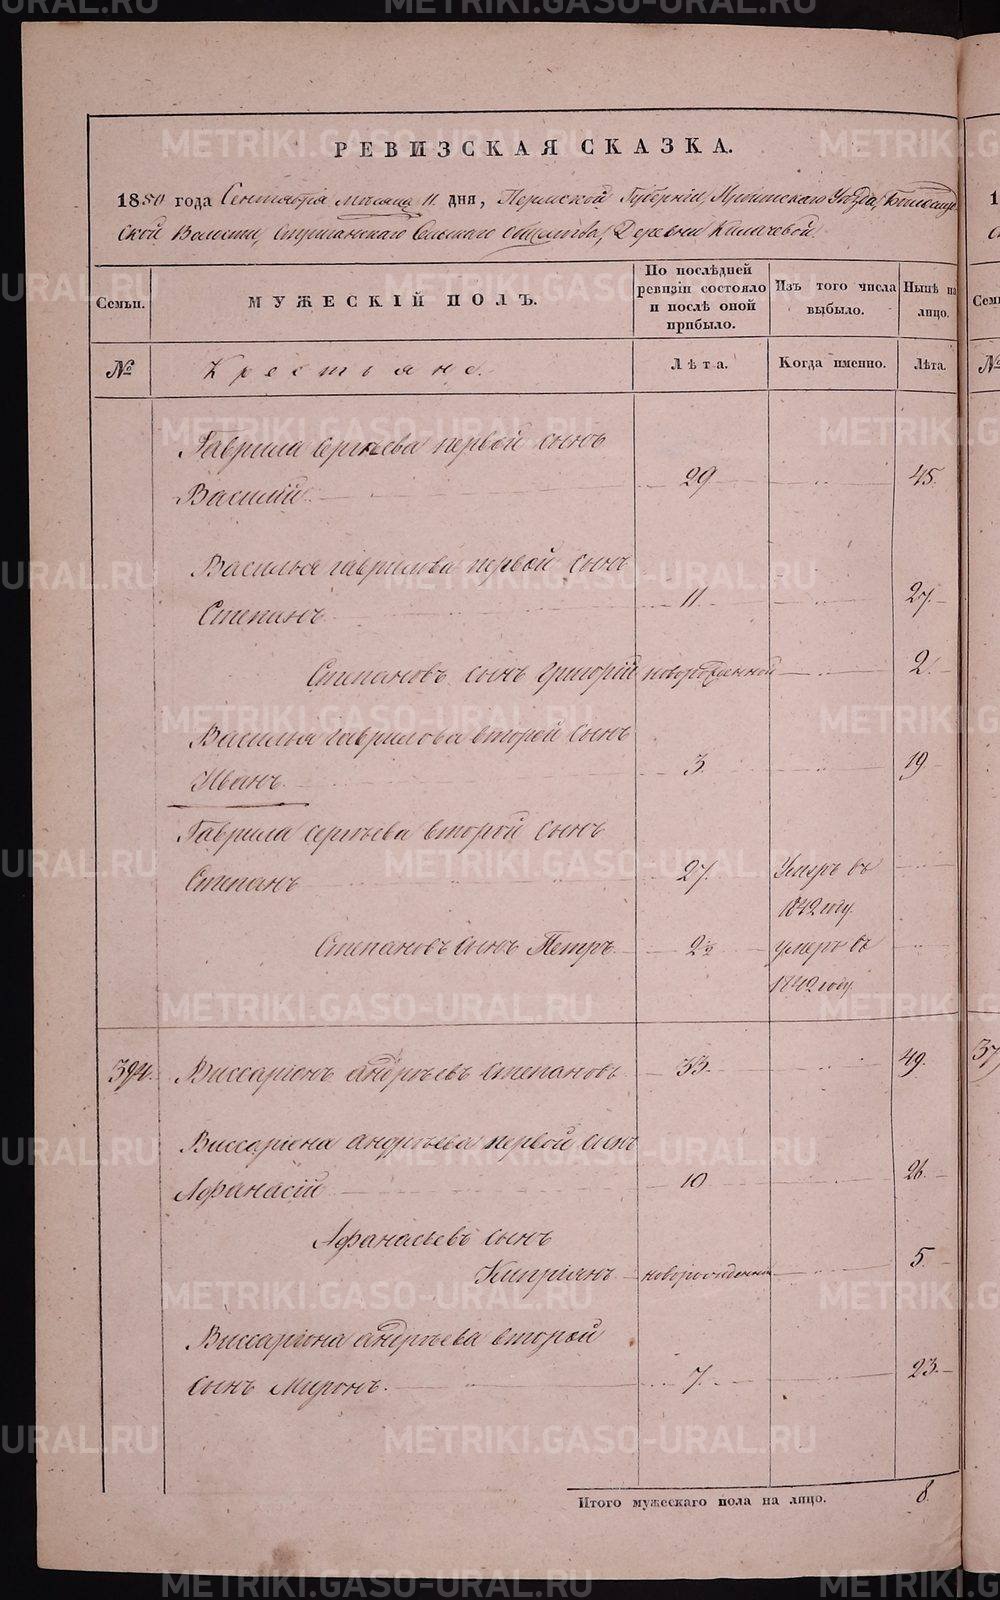 РЕВИЗСКАЯ СКАЗКА.
1850 года Сентября месяца 11 дня, Пермской Губернии, Ирбитскаго Уѣзда,
ской Волости, Сельскаго общества, Деревни Килачевой.
Семьи.
МУЖЕСКІЙ ПОЛЪ.
По послѣдней ревизіи состояло и послѣ оной прибыло.
Изъ того числа выбыло.
Нынѣ на лицо.
№
Крестьяне.
Лѣта.
Когда именно.
Лѣта.
Гаврила Сергѣева первой сынъ
Василій 29 45.
Василья Гаврилова первой сынъ
Степанъ 11 27.
Степановъ сынъ Григорій новорожденной 2.
Василья Гаврилова второй сынъ
Иванъ. 3. 19
Гаврила Сергѣева второй сынъ
Степанъ 27. Умеръ въ
1842 году.
Степановъ сынъ Петръ 2½ умеръ въ
1842 году
394. Виссаріонъ Андрѣевъ Степановъ 33. 49.
Виссаріона Андрѣева первой сынъ
Афанасій 10 26.
Афанасьевъ сынъ
Кипріянъ новорожденный 5.
Виссаріона Андрѣева второй
сынъ Миронъ. 7. 23.
Итого мужескаго пола на лицо. 8.
METRIKI.GASO-URAL.RU